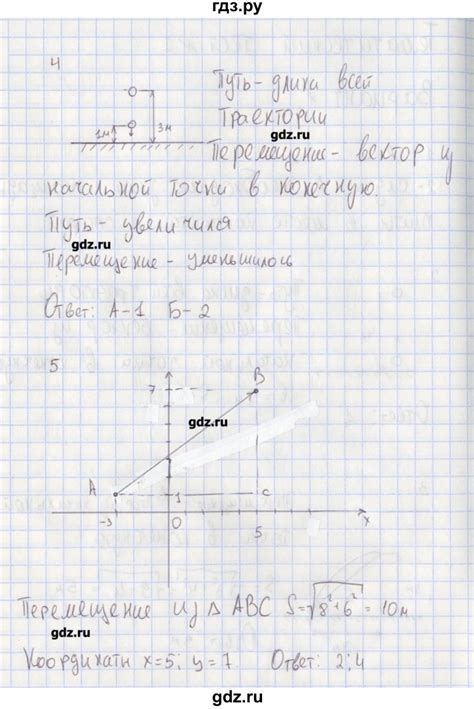 гдз.ру
4
Путь - длина всей
Траектории
gdz.ru
1м
3м
Перемещение - вектор из
начальной точки в конечную.
Путь - увеличился
gdz.ru
Перемещение - уменьшилось
gdz.ru
Ответ: А-1 Б-2
5
7
B
gdz.ru
A
1
C
-3
0
5
x
gdz.ru
Перемещение из Δ ABC S=√8²+6² = 10м
gdz.ru
Координаты x=5; y=7 Ответ: 2;4
gdz.ru